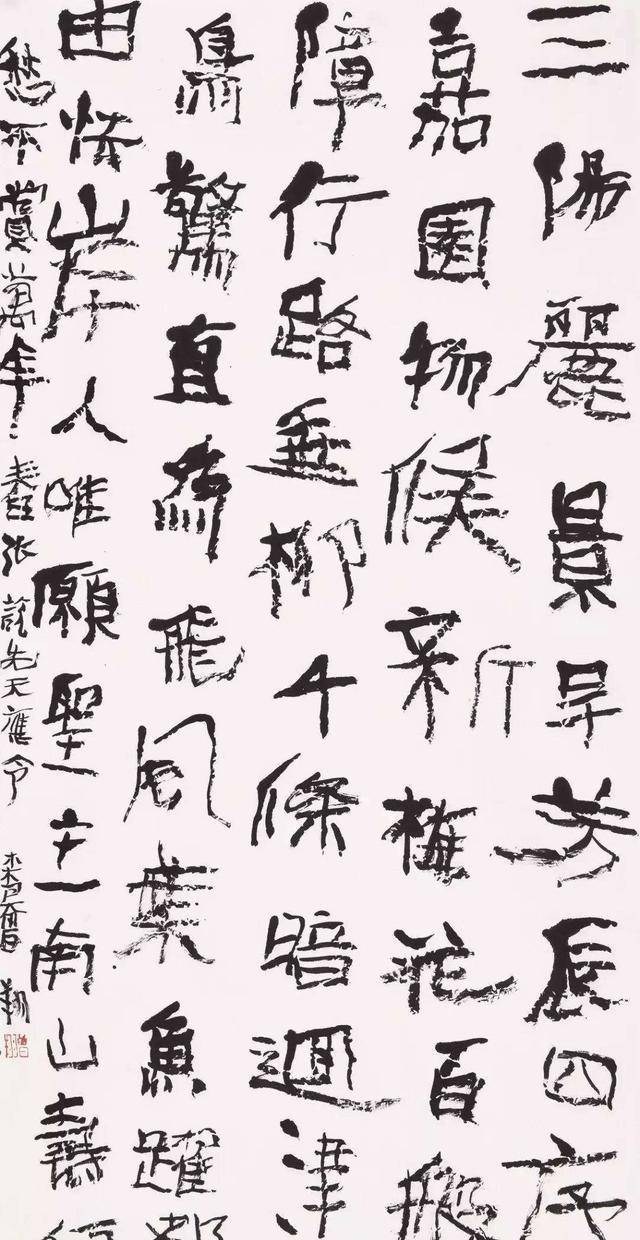 三陽麗景早芳辰四序
嘉園物候新梅花百般
障行路垂柳千條暗迴津
鳥驚直為飛風葉魚躍都
由怯岸人唯願聖主南山壽何
愁不賞萬年春張說先天應令 曾翔